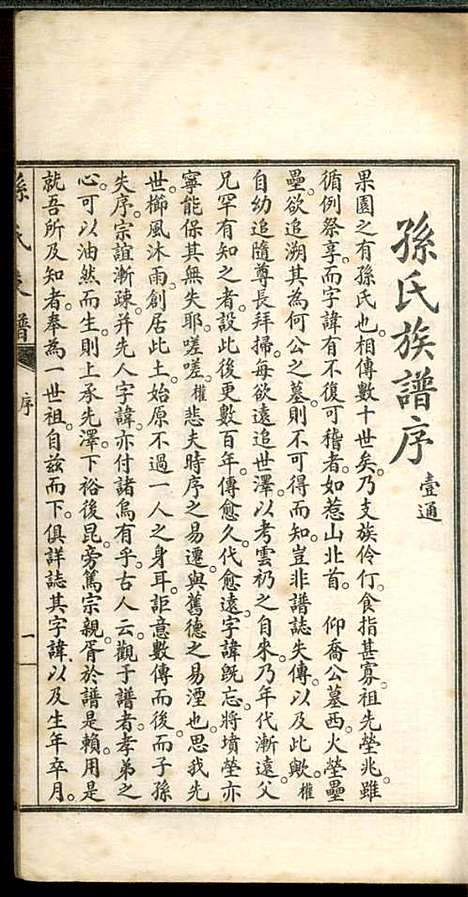 孫氏族譜序 壹通
果園之有孫氏也。相傳數十世矣。乃支族伶仃。食指甚寡。祖先塋兆。雖
循例祭享。而字諱有不復可稽者。如惹山北首。仰喬公墓西。火塋壘
壘。欲追溯其為何公之墓。則不可得而知。豈非譜誌失傳。以及此歟。權
自幼追隨尊長拜掃。每欲遠追世澤。以考雲礽之自來。乃年代漸遠。父
兄罕有知之者。設此後更數百年。傳愈久。代愈遠。字諱既忘。將墳塋亦
寧能保其無失耶。嗟嗟。權悲夫時序之易遷。與舊德之易湮也。思我先
世。櫛風沐雨。創居此土。始原不過一人之身耳。詎意數傳而後。而子孫
失序。宗誼漸疎。并先人字諱。亦付諸烏有乎。古人云。觀于譜者。孝弟之
心。可以油然而生。則上承先澤。下裕後昆。旁篤宗親。胥於譜是賴。用是
就吾所及知者。奉為一世祖。自茲而下。俱詳誌其字諱。以及生年卒月。
孫氏支譜
序
一